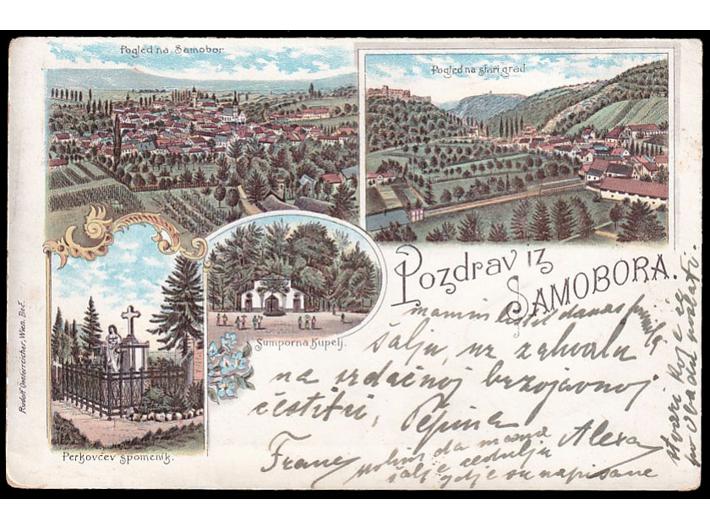 Pogled na Samobor
Pogled na stari grad
Pozdrav iz
SAMOBORA.
Sumporna Kupelj.
Perkovčev spomenik.
Rudolf Oesterreicher, Wien, Beč.
mamin list danas primili
šalju, uz zahvalu
na srdačnoj brzojavnoj
čestitci, Pepina
Franc Alexa
molim da mama
šalje cedulju
gdje su napisane
stvari koje će